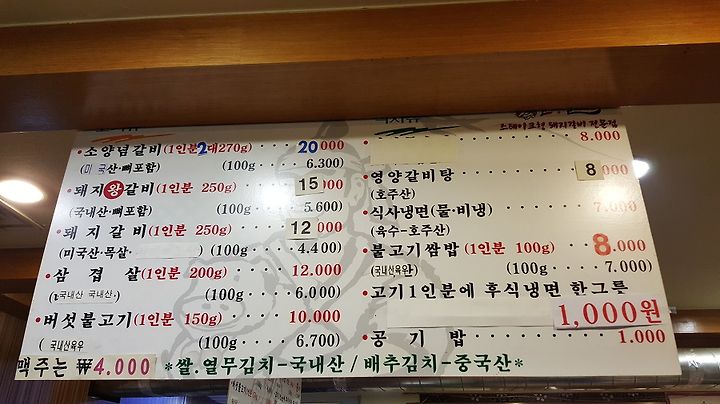 스테이크형 돼지갈비 전문점
·소양념갈비(1인분2대270g)·· 20,000
(미국산·뼈포함) (100g···· 6.300)
·돼지왕갈비(1인분 250g)··· 15,000
(국내산·뼈포함) (100g···· 5.600)
·돼지갈비(1인분 250g)···· 12,000
(미국산·목살· ) (100g···· 4.400)
·삼겹살(1인분 200g)···· 12.000
(국내산 국내산·) (100g···· 6.000)
·버섯불고기(1인분 150g)··· 10.000
( 국내산육우 (100g···· 6.700)
맥주는 ₩4.000
8.000
·영양갈비탕········ 8,000
(호주산)
·식사냉면(물·비냉)····· 7.000
(육수-호주산)
·불고기쌈밥(1인분 100g)··· 8.000
(국내산육우) (100g···· 7.000)
·고기1인분에 후식냉면 한그릇
1,000원
·공기밥·········· 1.000
*쌀.열무김치-국내산/배추김치-중국산*